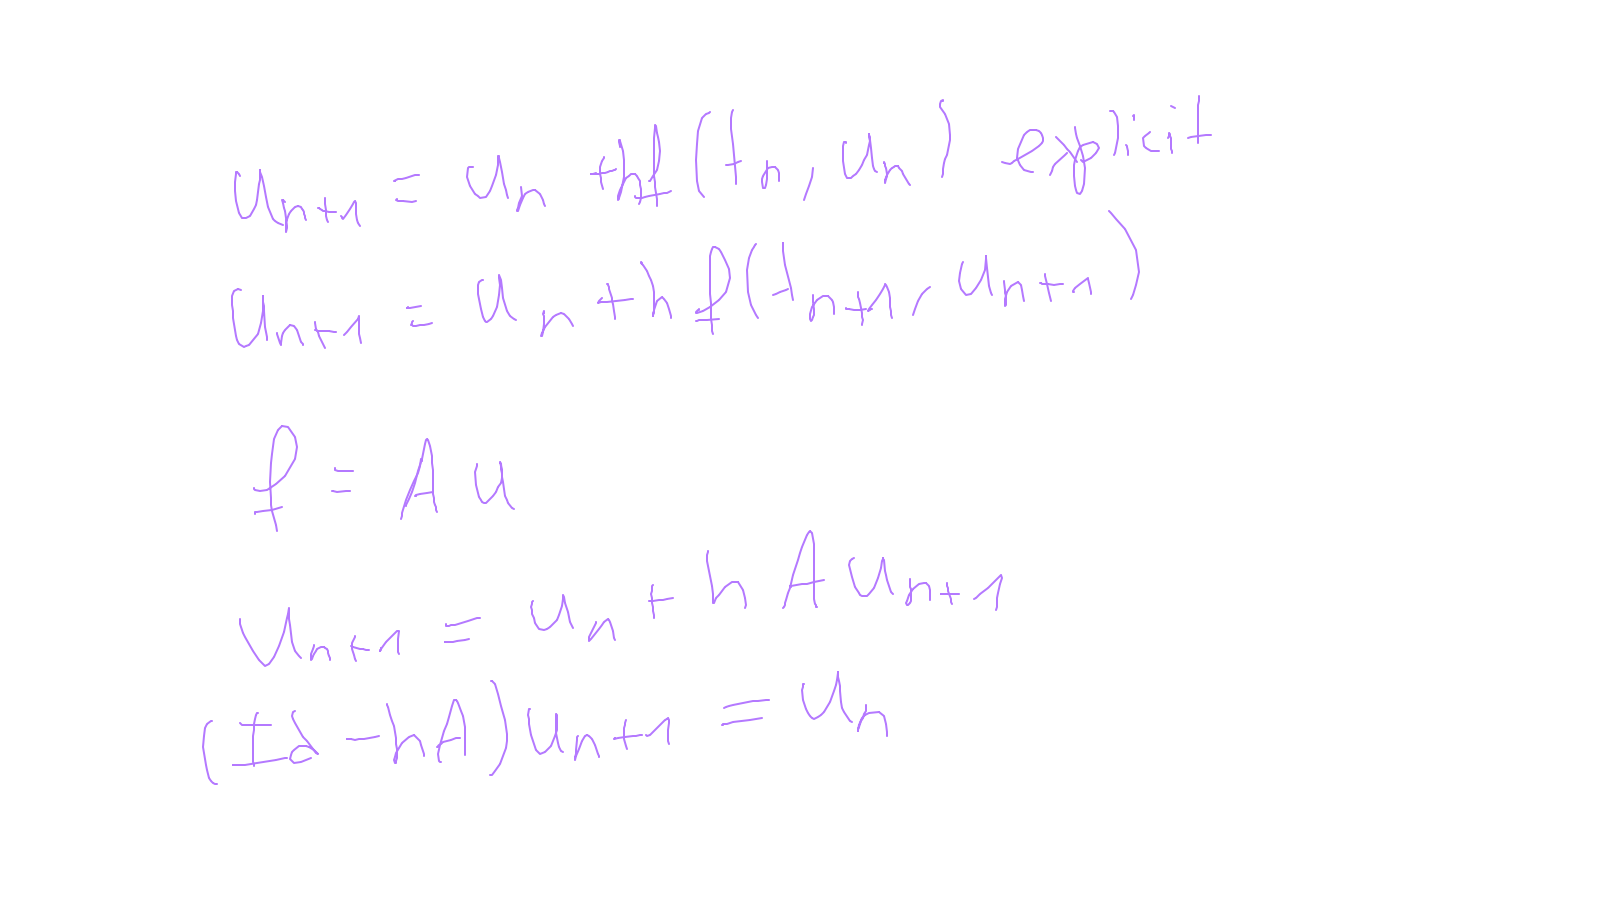 u_{n+1} = u_n + hf(t_n, u_n) explicit
u_{n+1} = u_n + h f(t_{n+1}, u_{n+1})
f = A u
u_{n+1} = u_n + h A u_{n+1}
(Id - hA) u_{n+1} = u_n